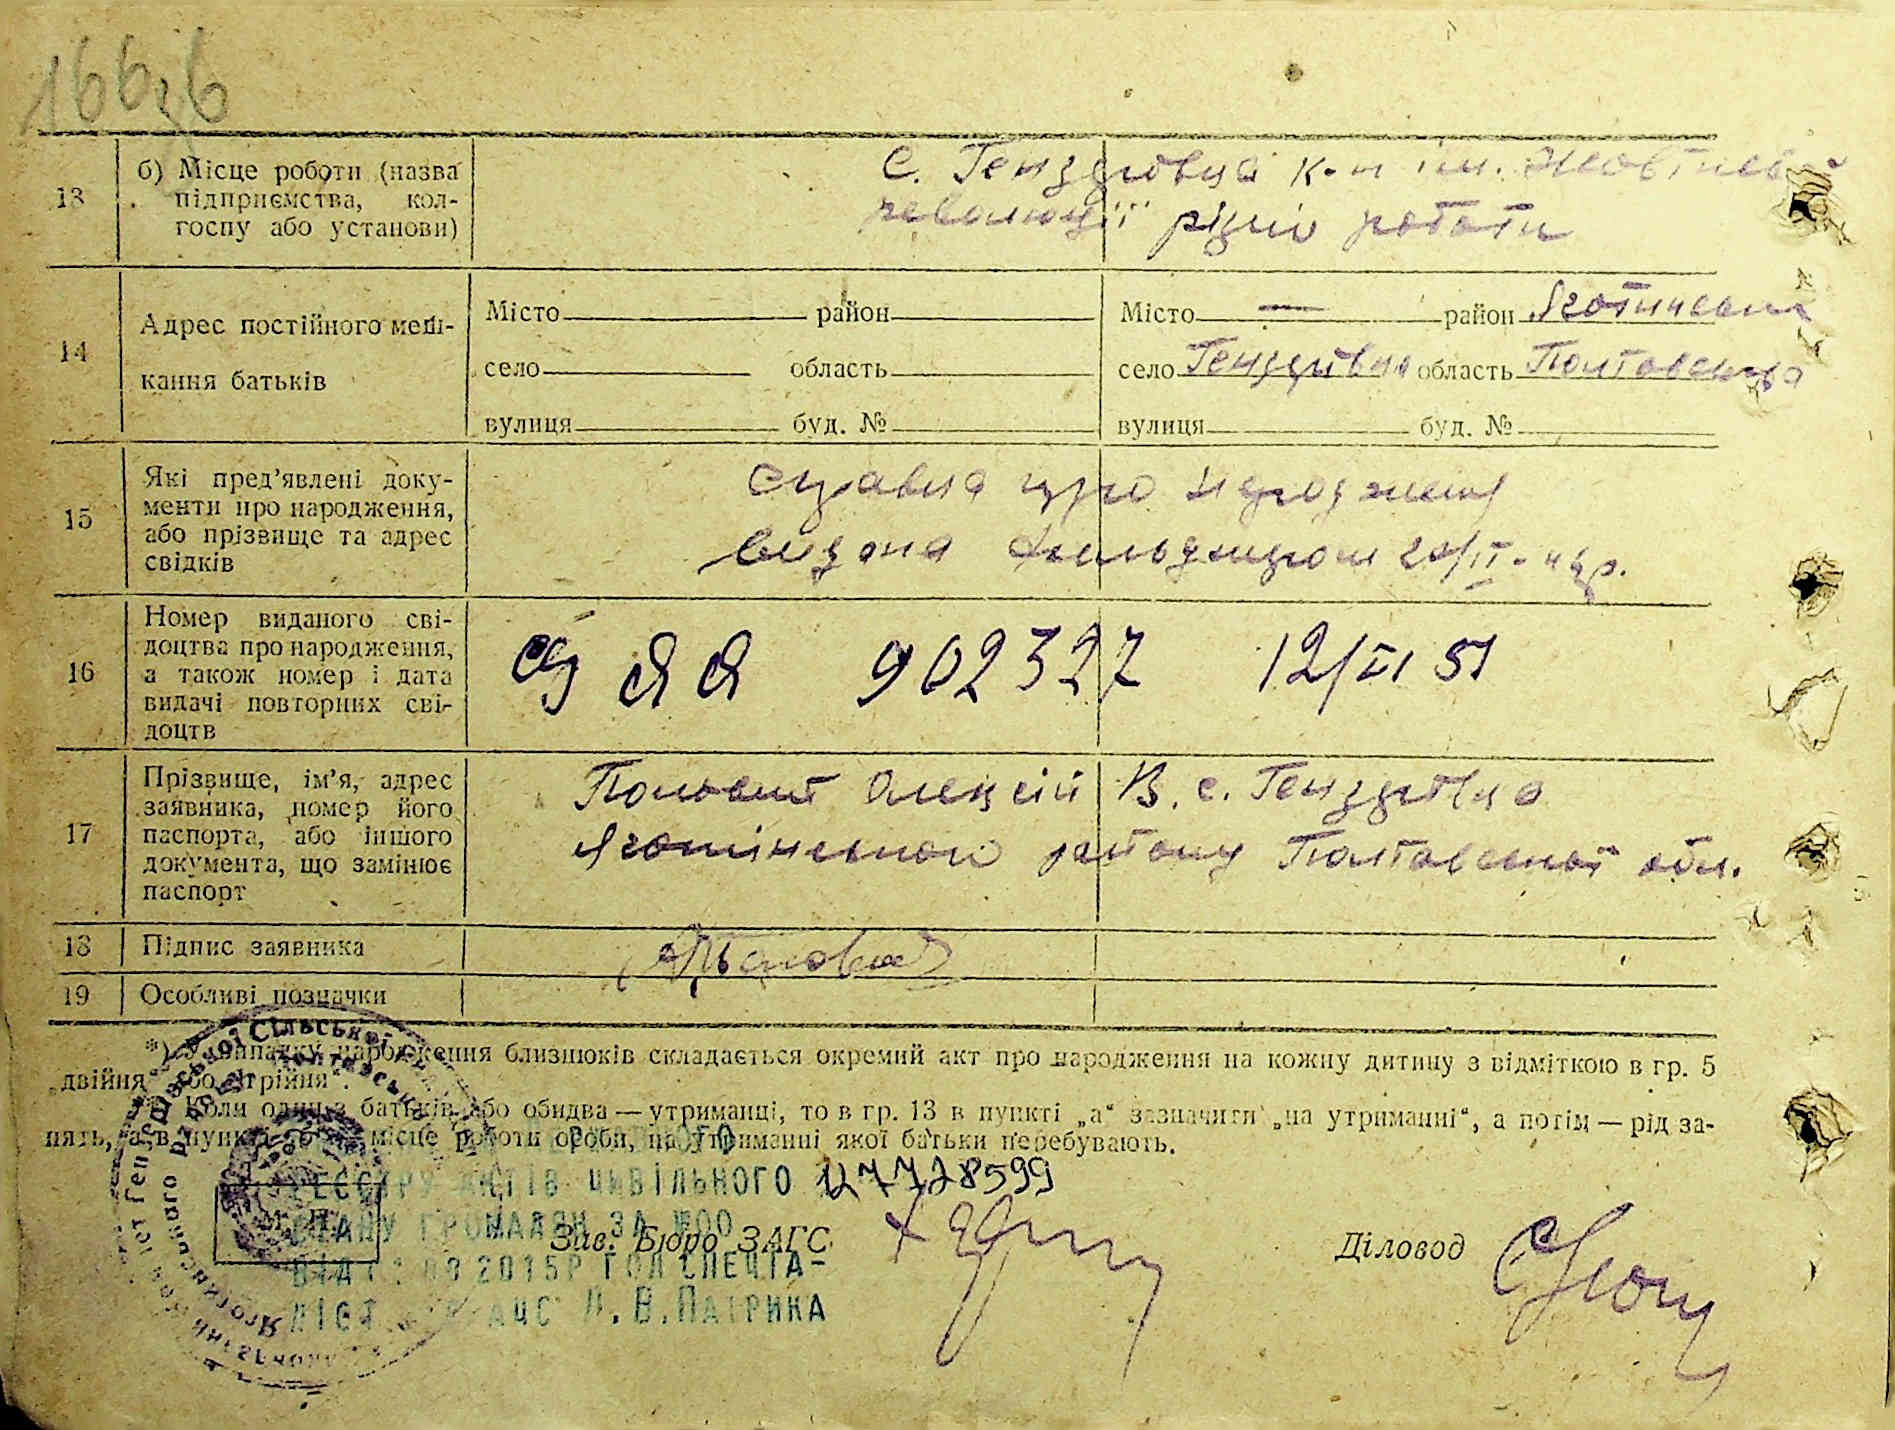 166,6
13
б) Місце роботи (назва
підприємства, кол-
госпу або установи)
с. Гензерівка к-п ім. Жовтневої
революції різні роботи
14
Адрес постійного меш-
кання батьків
Місто район
село область
вулиця буд. №
Місто — район Яготинськи
село Гензерівка область Полтавська
вулиця буд. №
15
Які пред’явлені доку-
менти про народження,
або прізвище та адрес
свідків
справка про народжен
видана фельдшером
16
Номер виданого сві-
доцтва про народження,
а також номер і дата
видачі повторних сві-
доцтв
ЯЯ 902327 12/VI 51
17
Прізвище, ім’я, адрес
заявника, номер його
паспорта, або іншого
документа, що замінює
паспорт
Олексій В. с. Гензерівка
Яготінського району Полтавської обл.
18
Підпис заявника
19
Особливі позначки
*) У випадку народження близнюків складається окремий акт про народження на кожну дитину з відміткою в гр. 5
„двійня“ або „трійня“.
Коли один з батьків або обидва — утриманці, то в гр. 13 в пункті „а“ зазначити „на утриманні“, а потім — рід за-
нять, а в пункті „б“ місце роботи особи, на утриманні якої батьки перебувають.
РЕЄСТРУ АКТІВ ЦИВІЛЬНОГО 127728599
СТАНУ ГРОМАДЯН ЗА №00
Зав. Бюро ЗАГС
Діловод
2015Р ГОЛ СПЕЦІА-
ЛІСТ Л.В.ПАТРИКА